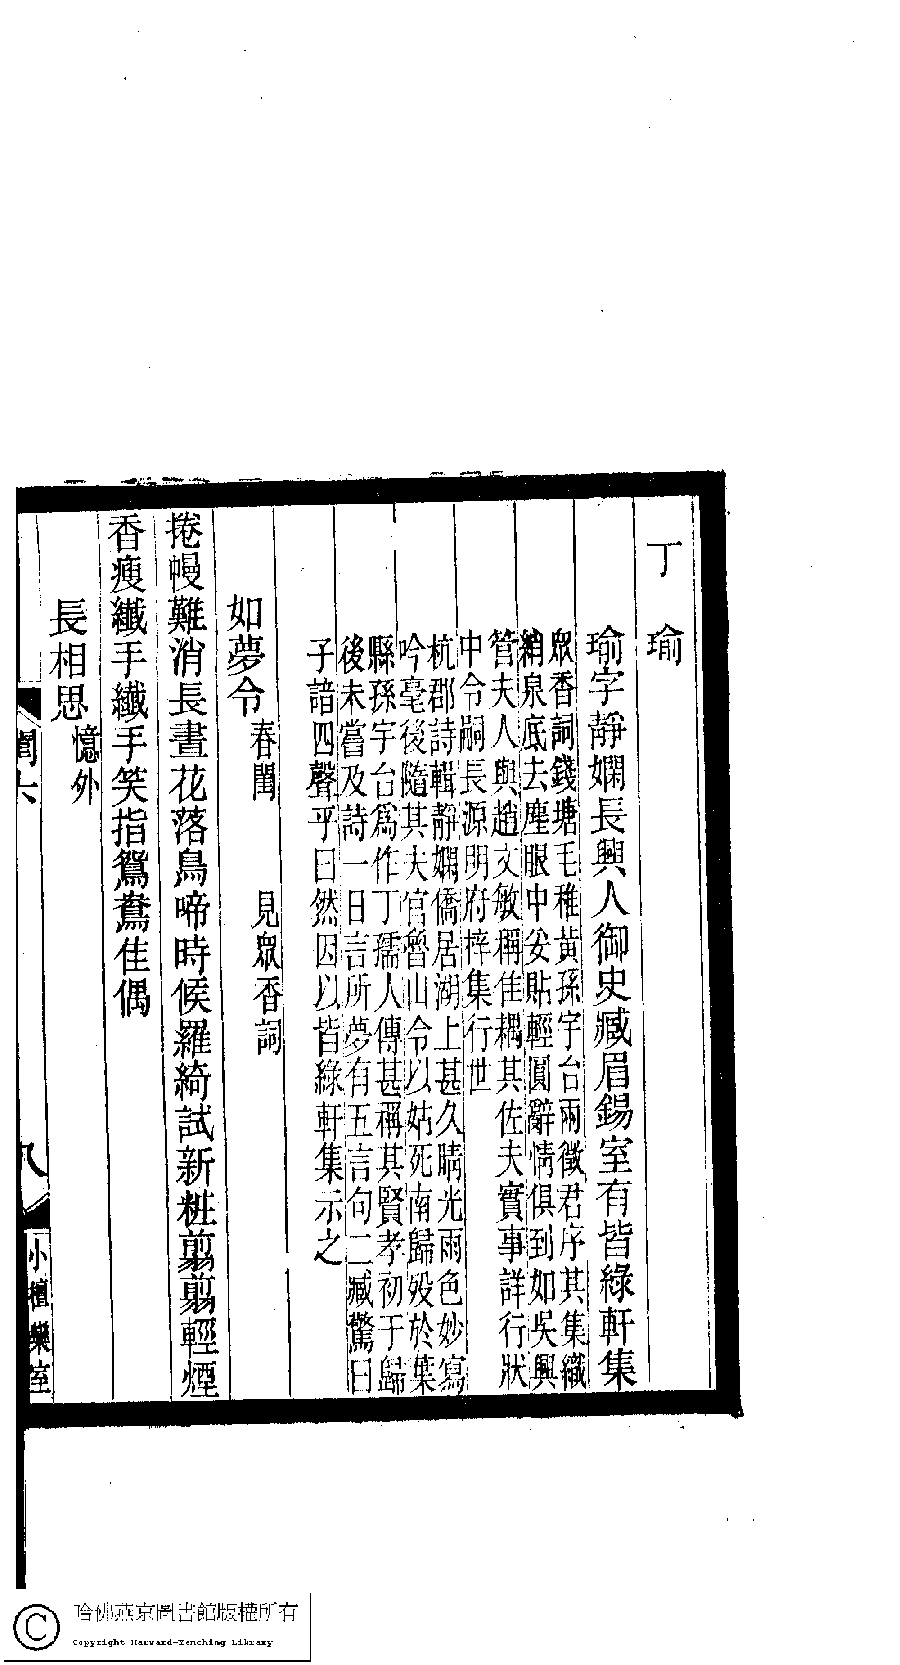 丁瑜
瑜字靜嫻長興人御史臧眉錫室有皆綠軒集
眾香詞錢塘毛稚黃孫宇台兩徵君序其集纖
綃泉底去塵眼中妥貼輕圓辭情俱到如吳興
管夫人與趙文敏稱佳耦其佐夫實事詳行狀
中令嗣長源明府梓集行世
杭郡詩輯靜嫻僑居湖上甚久晴光雨色妙寫
吟毫後隨其夫官魯山令以姑死南歸歿於葉
縣孫宇台為作丁孺人傳甚稱其賢孝初于歸
後未嘗及詩一日言所夢有五言句二臧驚曰
子諳四聲乎曰然因以皆綠軒集示之
如夢令 春閨 見眾香詞
捲幔難消長晝花落鳥啼時候羅綺試新粧翦翦輕煙
香瘦纖手纖手笑指鴛鴦佳偶
長相思 憶外
閨六
八
小檀欒室
哈佛燕京圖書館版權所有
Copyright Harvard-Yenching Library